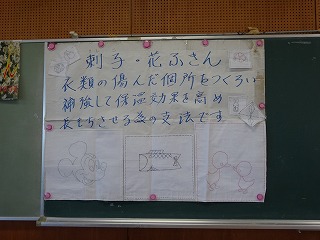 刺子・花ふきん
衣類の傷んだ個所をつくろい
補強して保温効果を高め
長もちさせる為の支法です